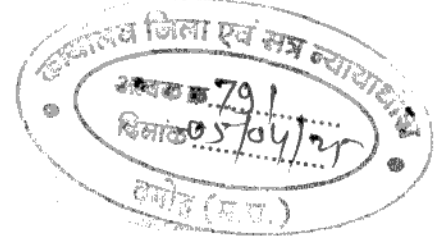 कार्यालय जिला एवं सत्र न्यायाधीश
आवक क्र 791
दिनांक 05/04/25
दमोह (म.प्र.)